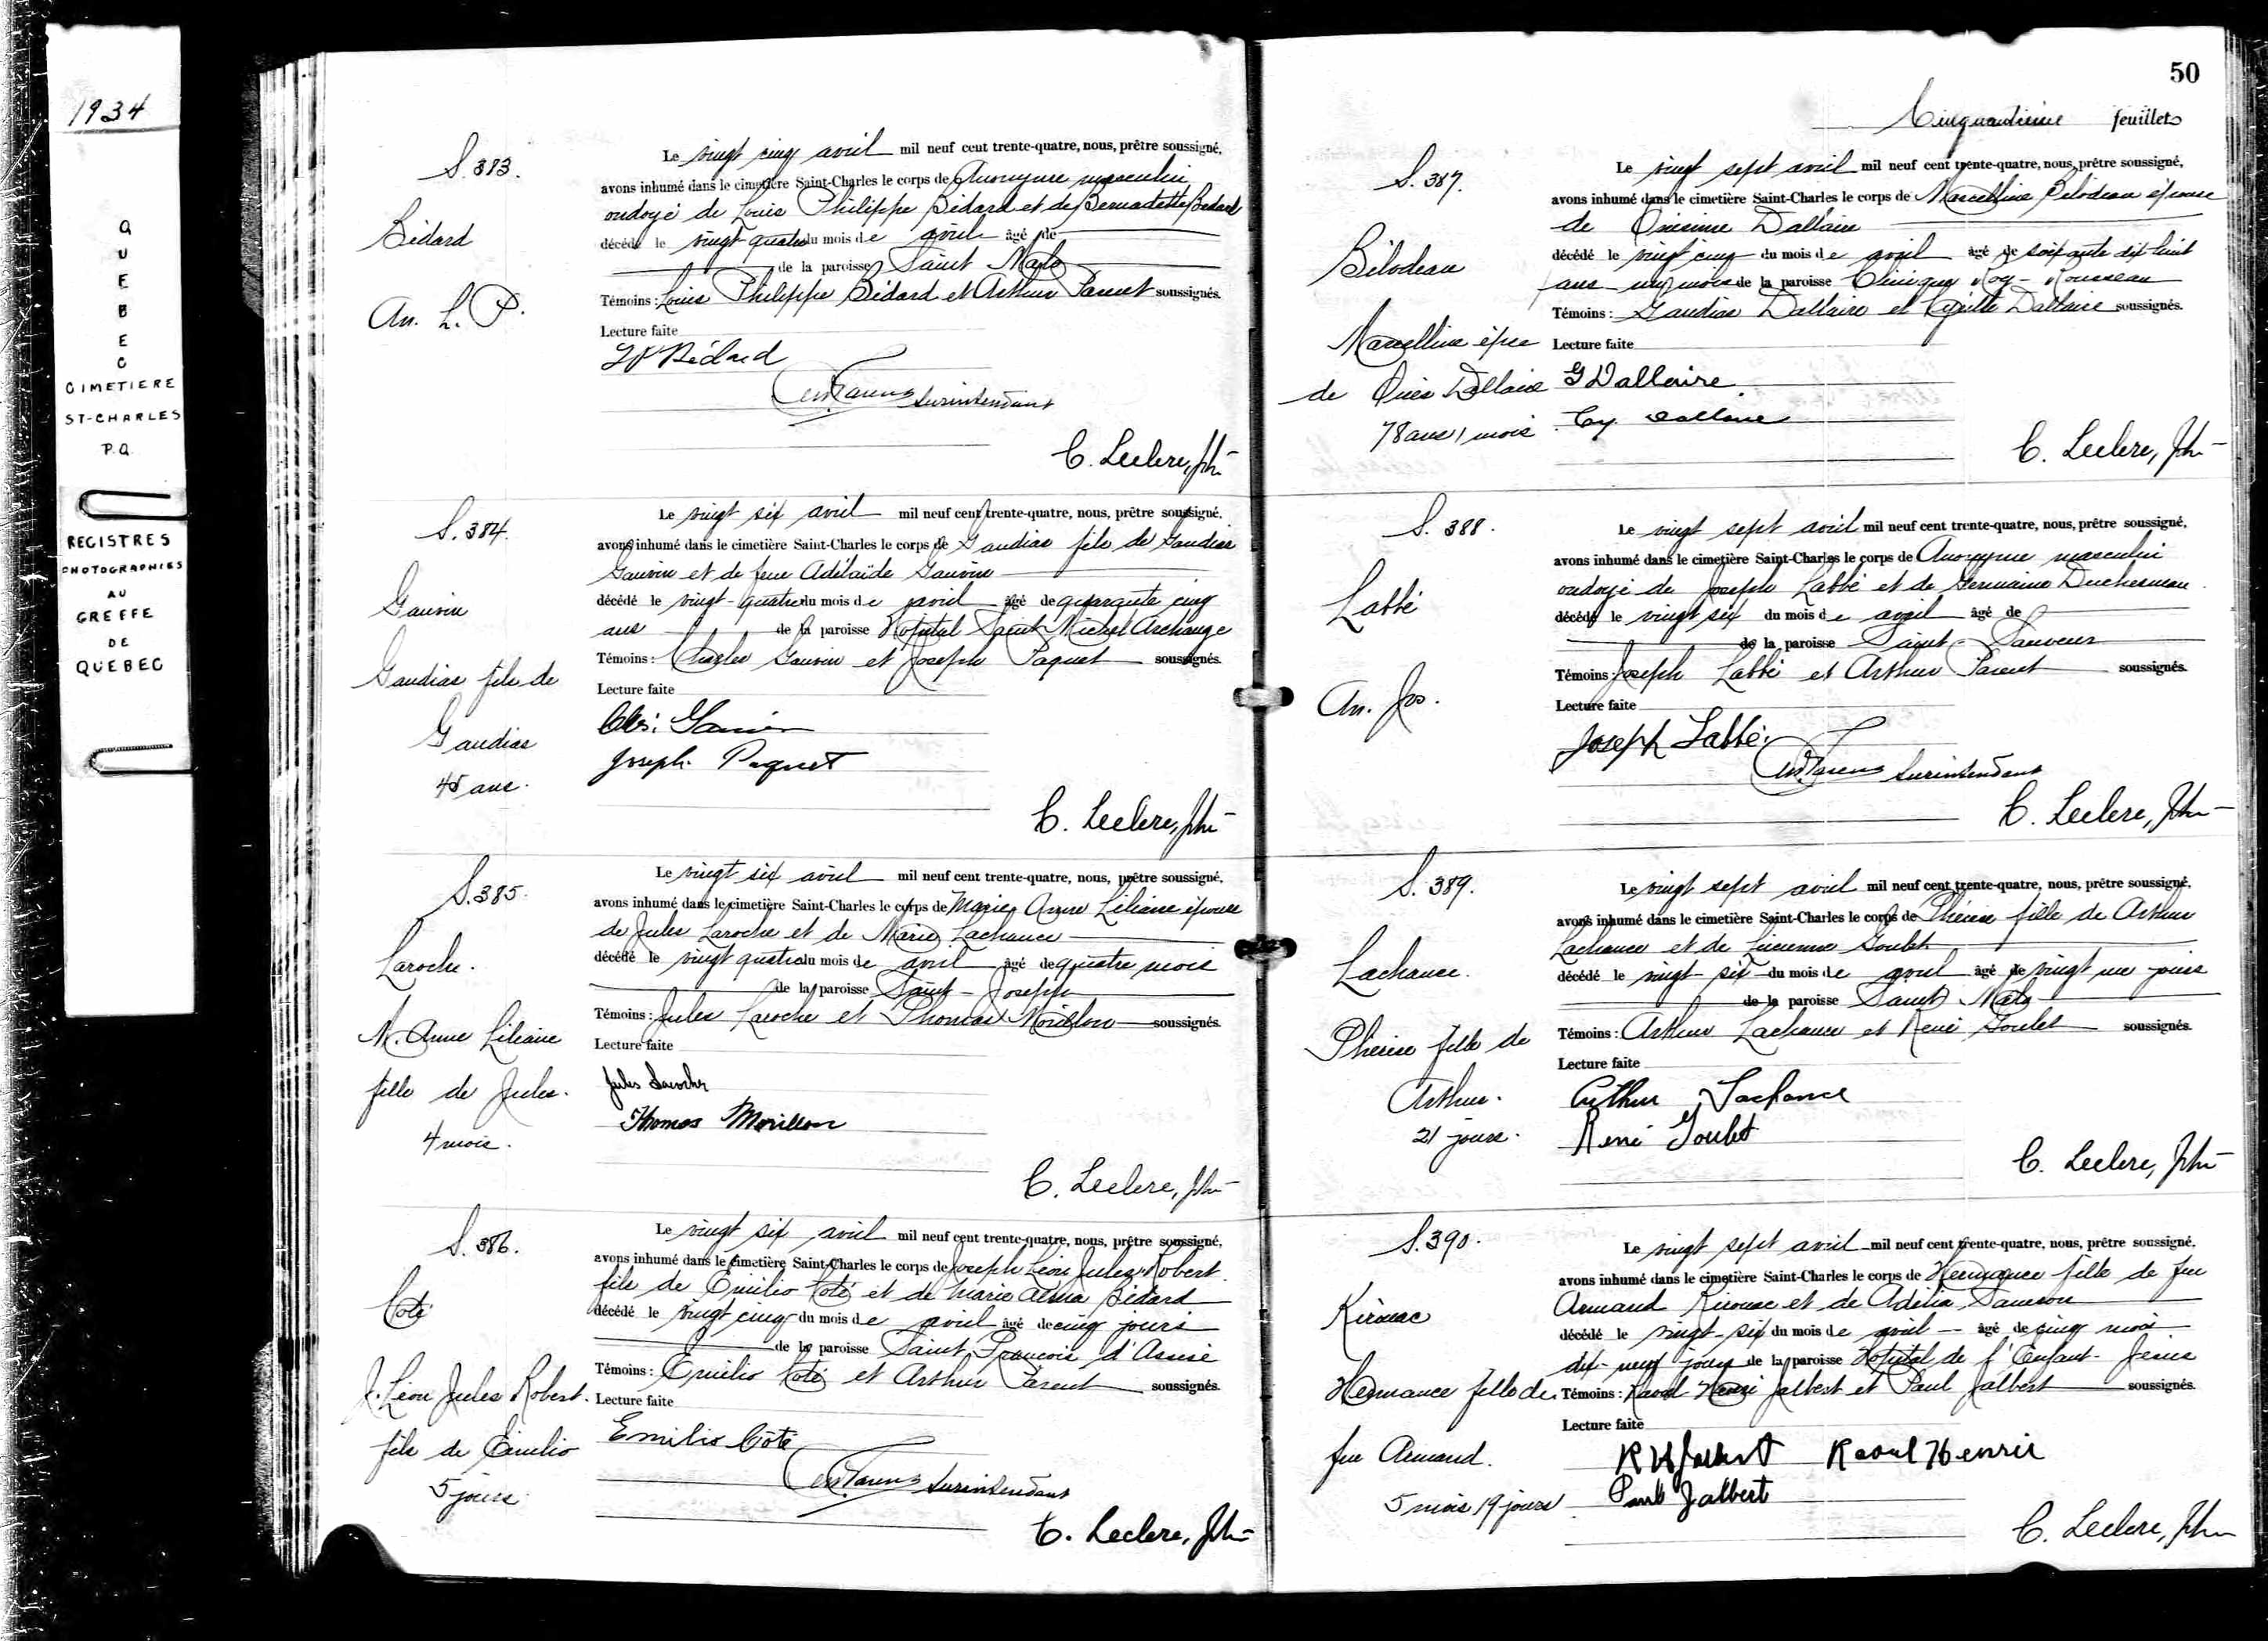 1934
QUEBEC
CIMETIERE
ST-CHARLES
P.Q.
REGISTRES
PHOTOGRAPHIES
AU
GREFFE
DE
QUEBEC
S. 383.
Bédard
An. L. P.
Le vingt cinq avril mil neuf cent trente-quatre, nous, prêtre soussigné,
avons inhumé dans le cimetière Saint-Charles le corps de Anonyme masculin
ondoyé de Louis Philippe Bédard et de Bernadette Bédard
décédé le vingt-quatre du mois de avril âgé de
de la paroisse Saint Malo
Témoins : Louis Philippe Bédard et Arthur Parent soussignés.
Lecture faite
LP Bédard
Surintendant
C. Leclerc, ptre
S. 384.
Gauvin
Gaudias fils de
Gaudias
45 ans.
Le vingt six avril mil neuf cent trente-quatre, nous, prêtre soussigné,
avons inhumé dans le cimetière Saint-Charles le corps de Gaudias fils de Gaudias
Gauvin et de feue Adélaïde Gauvin
décédé le vingt-quatre du mois de avril âgé de quarante cinq
ans de la paroisse Hôpital Saint Michel Archange
Témoins : Charles Gauvin et Joseph Paquet soussignés.
Lecture faite
Chs. Gauvin
Joseph Paquet
C. Leclerc, ptre
S. 385.
Laroche.
M. Anne Liliane
fille de Jules.
4 mois.
Le vingt six avril mil neuf cent trente-quatre, nous, prêtre soussigné,
avons inhumé dans le cimetière Saint-Charles le corps de Marie Anne Liliane épouse
de Jules Laroche et de Marie Lachance
décédé le vingt quatre du mois de avril âgé de quatre mois
de la paroisse Saint-Joseph
Témoins : Jules Laroche et Thomas Morillon soussignés.
Lecture faite
Jules Laroche
Thomas Morillon
C. Leclerc, ptre
S. 386.
Coté
J. Léon Jules Robert.
fils de Emilio
5 jours
Le vingt six avril mil neuf cent trente-quatre, nous, prêtre soussigné,
avons inhumé dans le cimetière Saint-Charles le corps de Joseph Léon Jules Robert
fils de Emilio Coté et de Marie Alma Bédard
décédé le vingt cinq du mois de avril âgé de cinq jours
de la paroisse Saint François d'Assise
Témoins : Emilio Coté et Arthur Parent soussignés.
Lecture faite
Emilio Côté
Surintendant
C. Leclerc, ptre
50
Cinquantième feuillet
S. 387.
Bilodeau
Marcelline épse
de Onés Dallaire
78 ans 1 mois
Le vingt sept avril mil neuf cent trente-quatre, nous, prêtre soussigné,
avons inhumé dans le cimetière Saint-Charles le corps de Marcelline Bilodeau épouse
de Onésime Dallaire
décédé le vingt cinq du mois de avril âgé de soixante dix huit
ans un mois de la paroisse Clinique Roy-Rousseau
Témoins : Gaudias Dallaire et Cyrille Dallaire soussignés.
Lecture faite
G Dallaire
Cy Dallaire
C. Leclerc, ptre
S. 388.
Labbé
An. Jos.
Le vingt sept avril mil neuf cent trente-quatre, nous, prêtre soussigné,
avons inhumé dans le cimetière Saint-Charles le corps de Anonyme masculin
ondoyé de Joseph Labbé et de Germaine Duchesneau
décédé le vingt six du mois de avril âgé de
de la paroisse Saint-Sauveur
Témoins : Joseph Labbé et Arthur Parent soussignés.
Lecture faite
Joseph Labbé.
Surintendant
C. Leclerc, ptre
S. 389.
Lachance.
Thérèse fille de
Arthur.
21 jours.
Le vingt sept avril mil neuf cent trente-quatre, nous, prêtre soussigné,
avons inhumé dans le cimetière Saint-Charles le corps de Thérèse fille de Arthur
Lachance et de Lucienne Goulet
décédé le vingt-six du mois de avril âgé de vingt un jours
de la paroisse Saint Malo
Témoins : Arthur Lachance et René Goulet soussignés.
Lecture faite
Arthur Lachance
René Goulet
C. Leclerc, ptre
S. 390.
Kirouac
Hermance fille de
feu Armand.
5 mois 19 jours
Le vingt sept avril mil neuf cent trente-quatre, nous, prêtre soussigné,
avons inhumé dans le cimetière Saint-Charles le corps de Hermance fille de feu
Armand Kirouac et de Adélia Samson
décédé le vingt-six du mois de avril âgé de cinq mois
dix-neuf jours de la paroisse Hôpital de l'Enfant-Jésus
Témoins : Raoul Henri Jalbert et Paul Jalbert soussignés.
Lecture faite
R H Jalbert Raoul Henri
Paul Jalbert
C. Leclerc, ptre